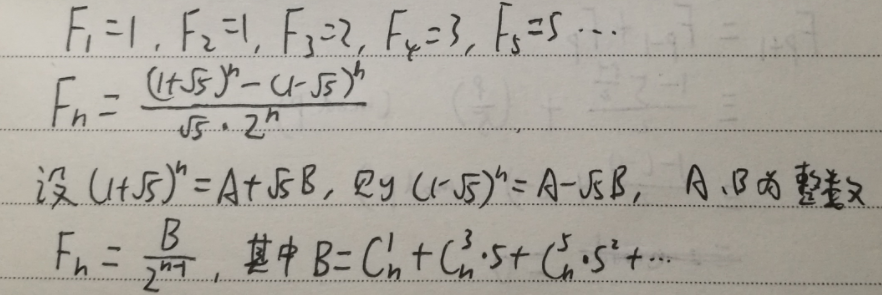 F₁=1, F₂=1, F₃=2, F₄=3, F₅=5 ⋯
Fₙ = ((1+√5)ⁿ-(1-√5)ⁿ)/(√5·2ⁿ)
设 (1+√5)ⁿ=A+√5B, 则 (1-√5)ⁿ=A-√5B, A、B为整数
Fₙ = B/2ⁿ⁻¹, 其中 B=Cₙ¹+Cₙ³·5+Cₙ⁵·5²+⋯